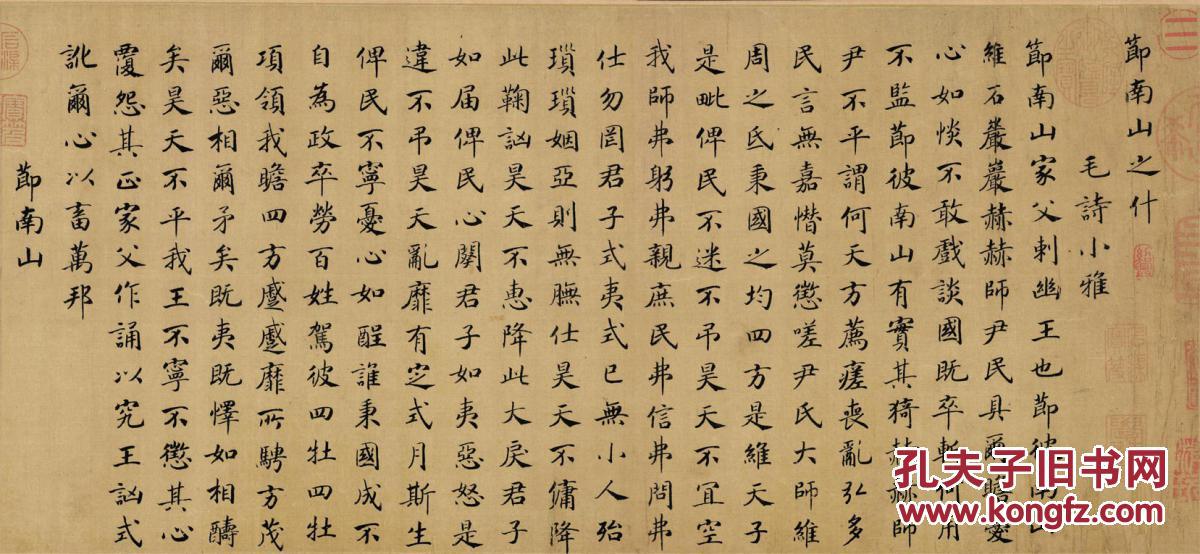 節南山之什
毛詩小雅
節南山家父刺幽王也節彼南山
維石巖巖赫赫師尹民具爾瞻憂
心如惔不敢戲談國既卒斬何用
不監節彼南山有實其猗赫赫師
尹不平謂何天方薦瘥喪亂弘多
民言無嘉憯莫懲嗟尹氏大師維
周之氐秉國之均四方是維天子
是毗俾民不迷不弔昊天不宜空
我師弗躬弗親庶民弗信弗問弗
仕勿罔君子式夷式已無小人殆
瑣瑣姻亞則無膴仕昊天不傭降
此鞠訩昊天不惠降此大戾君子
如届俾民心闋君子如夷惡怒是
違不弔昊天亂靡有定式月斯生
俾民不寧憂心如酲誰秉國成不
自為政卒勞百姓駕彼四牡四牡
項領我瞻四方蹙蹙靡所騁方茂
爾惡相爾矛矣既夷既懌如相醻
矣昊天不平我王不寧不懲其心
覆怨其正家父作誦以究王訩式
訛爾心以畜萬邦
節南山
孔夫子旧书网
www.kongfz.com